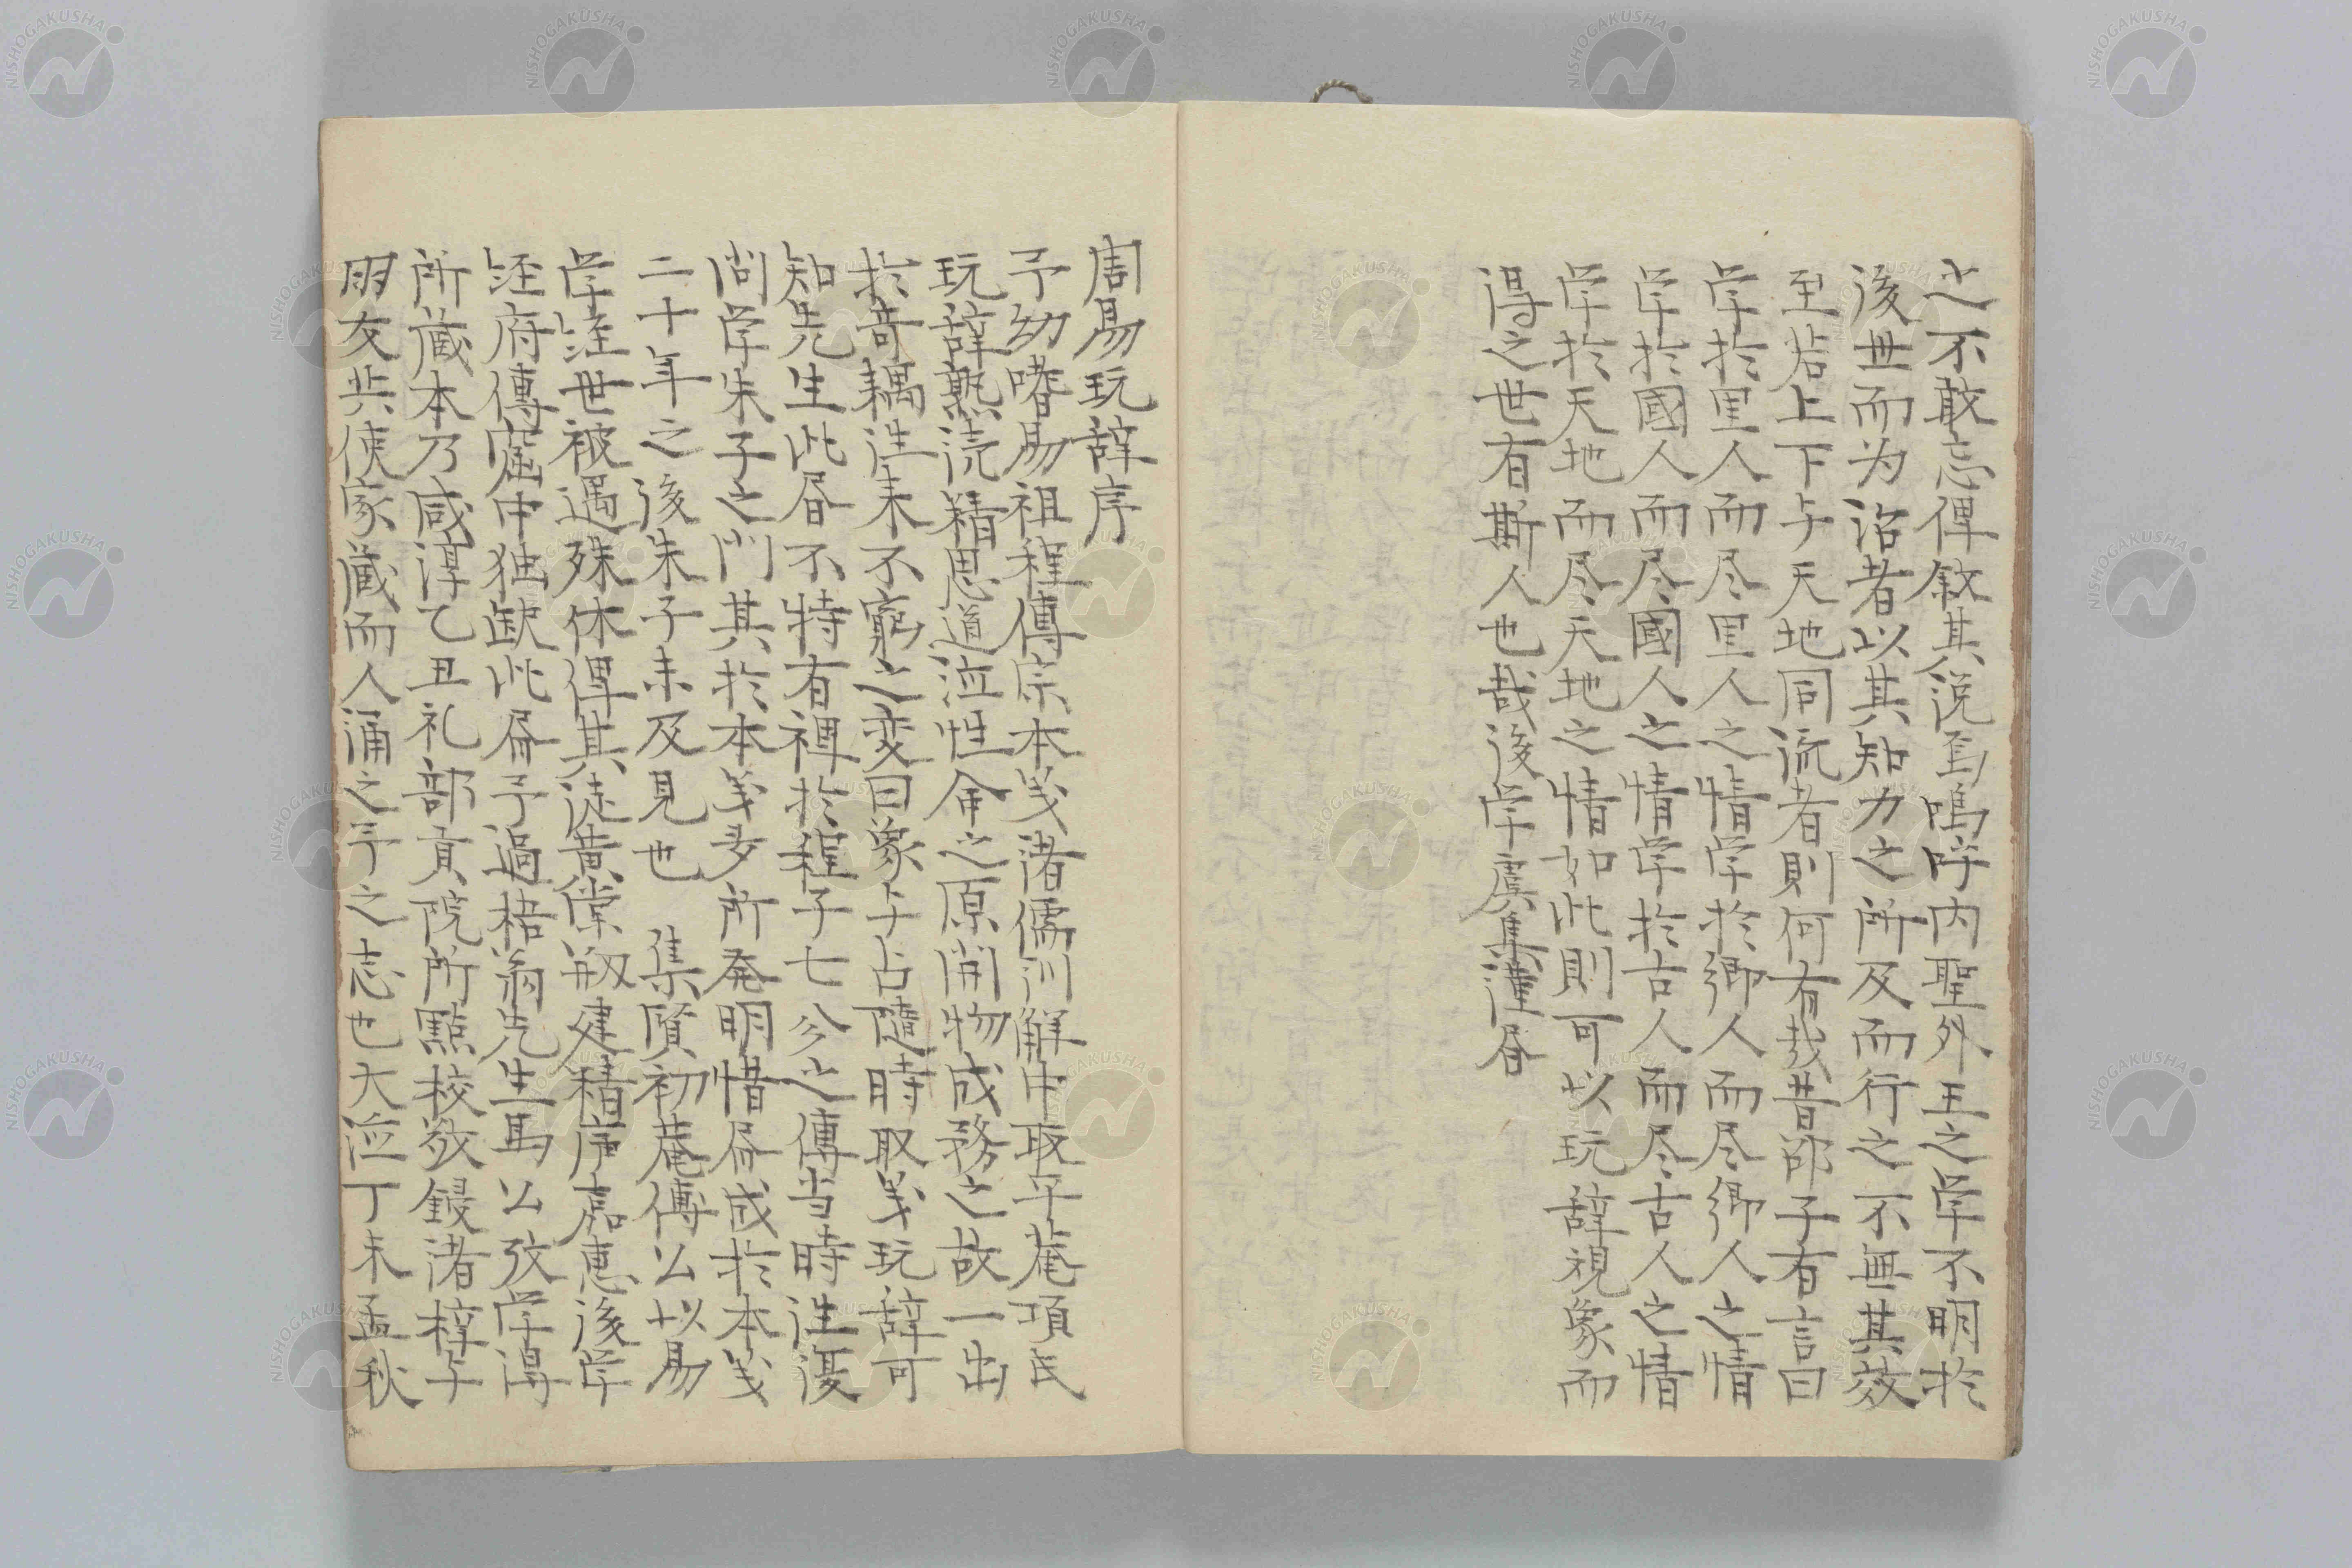 之不敢忘俾敘其説焉嗚呼内聖外王之学不明於
後世而为治者以其知力之所及而行之不無其效
至若上下与天地同流者則何有哉昔邵子有言曰
学於里人而尽里人之情学於郷人而尽郷人之情
学於國人而尽國人之情学於古人而尽古人之情
学於天地而尽天地之情如此則可以玩辞視象而
得之世有斯人也哉後学虞集謹昏
周易玩辞序
予幼嗜易祖程傳宗本义諸儒訓解中取平菴項氏
玩辞熟読精思道泣性命之原開物成務之故一出
於竒耦往来不窮之变曰象与占隨時取义玩辞可
知先生此昏不特有裨於程子七分之傳当時往復
问学朱子之门其於本义多所発明惜昏成於本义
二十年之後朱子未及見也 集賢初菴傳公以易
学経世被遇殊休俾其徒黄棠瓶建精序嘉惠後学
経府傳窟中独缺此昏予過梧翁先生馬公攷学得
所蔵本乃咸淳乙丑礼部貢院所點校敬鋟諸梓与
朋友共使家蔵而人誦之予之志也大泣丁未孟秋
NISHOGAKUSHA